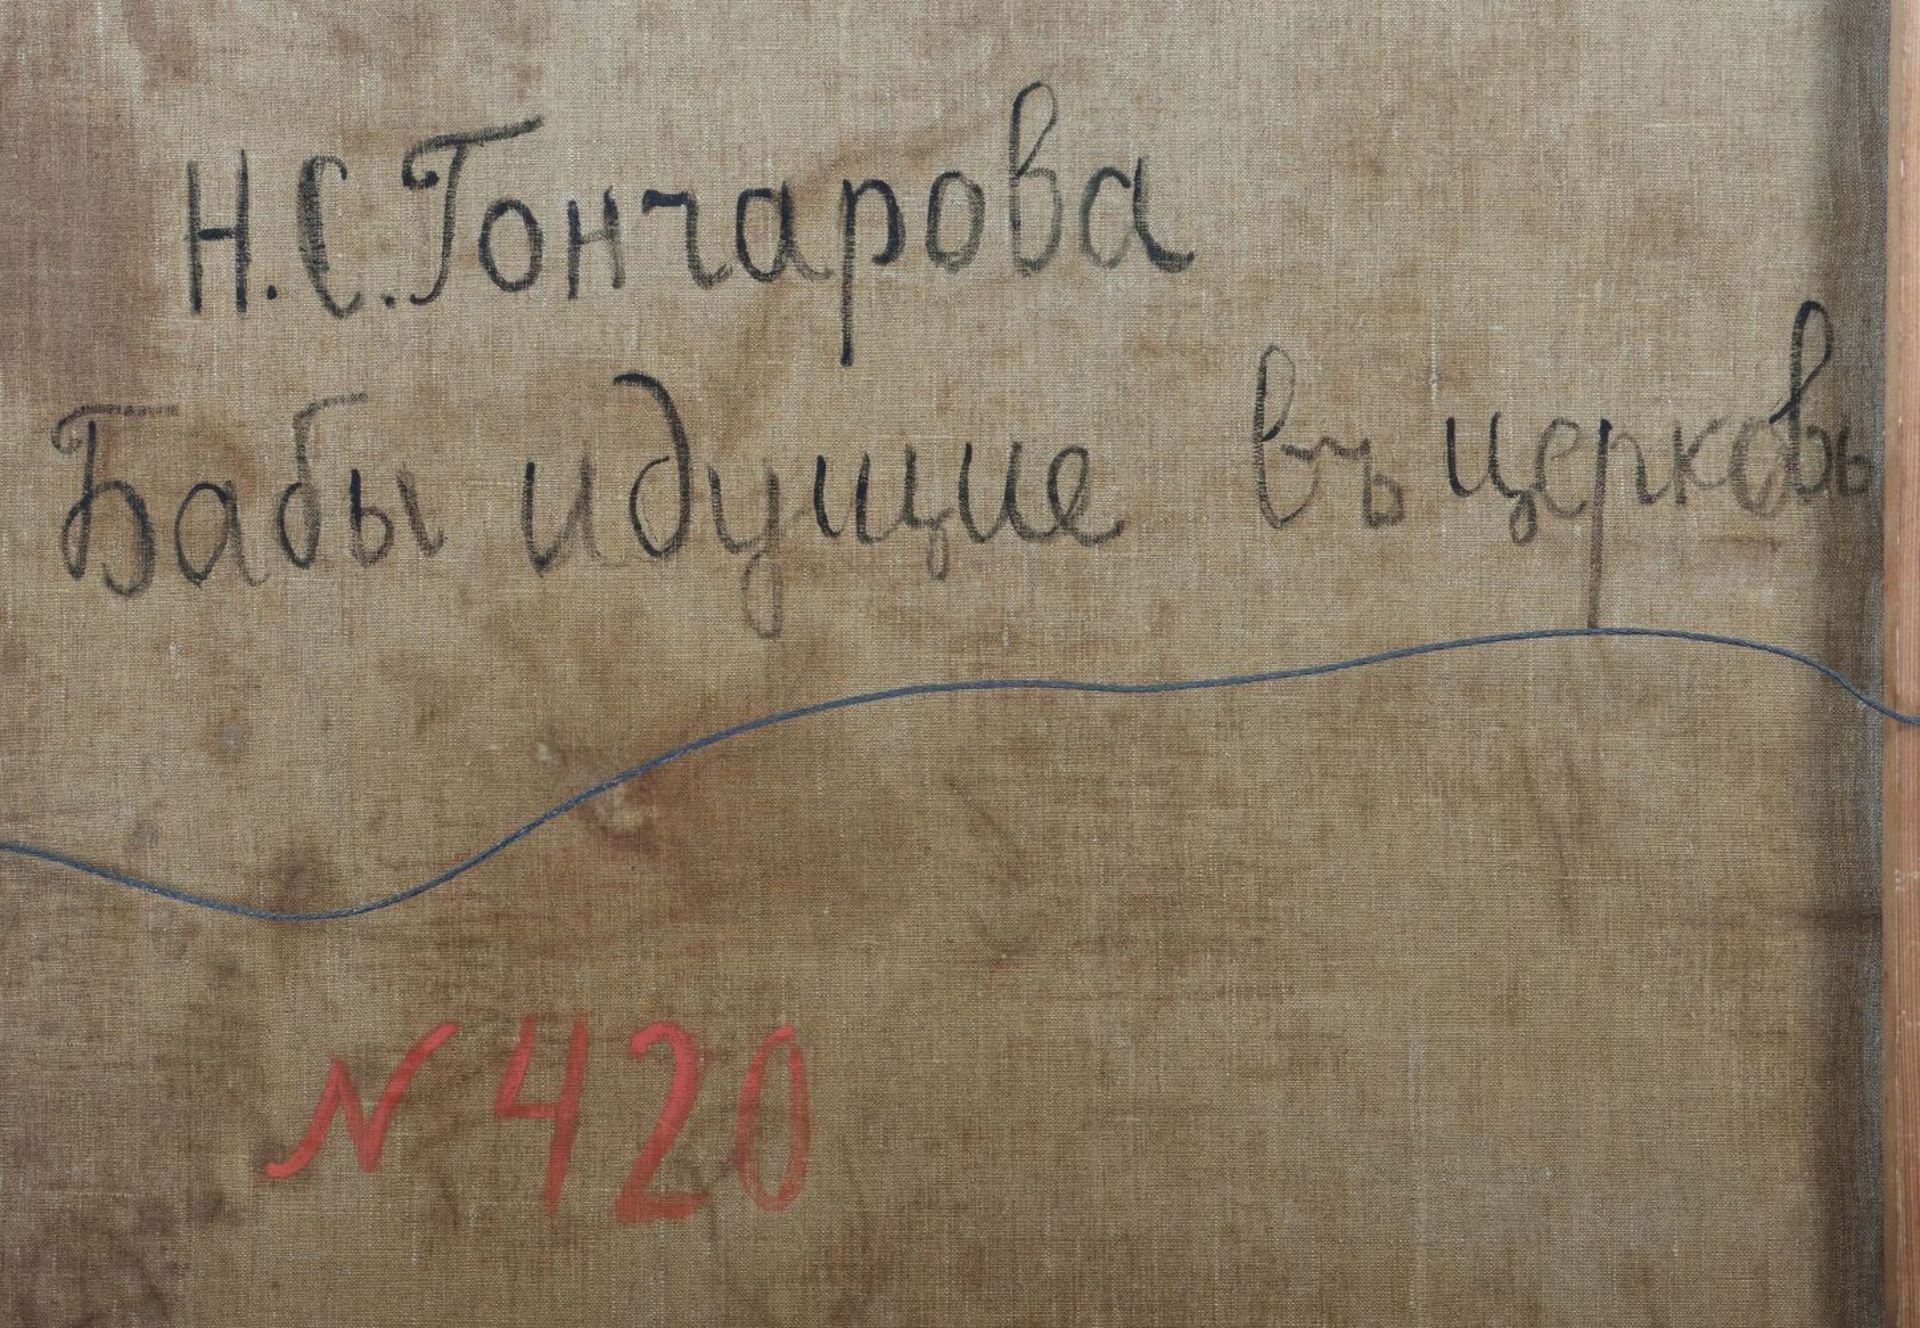 Н. С. Гончарова
Бабы идущие въ церковь
N 420